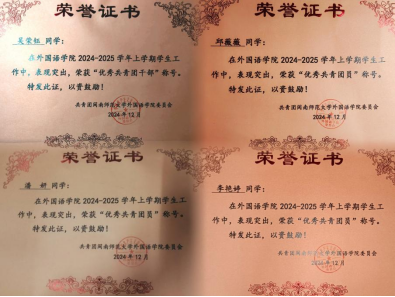 荣誉证书
吴荣钰 同学:
在外国语学院2024-2025学年上学期学生工
作中,表现突出,荣获“优秀共青团干部”称号。
特发此证,以资鼓励!
共青团闽南师范大学外国语学院委员会
2024年12月
荣誉证书
邱薇薇 同学:
在外国语学院2024-2025学年上学期学生工
作中,表现突出,荣获“优秀共青团员”称号。
特发此证,以资鼓励!
共青团闽南师范大学外国语学院委员会
2024年12月
荣誉证书
潘 妍 同学:
在外国语学院2024-2025学年上学期学生工
作中,表现突出,荣获“优秀共青团员”称号。
特发此证,以资鼓励!
共青团闽南师范大学外国语学院委员会
2024年12月
荣誉证书
李艳婷 同学:
在外国语学院2024-2025学年上学期学生工
作中,表现突出,荣获“优秀共青团员”称号。
特发此证,以资鼓励!
共青团闽南师范大学外国语学院委员会
2024年12月